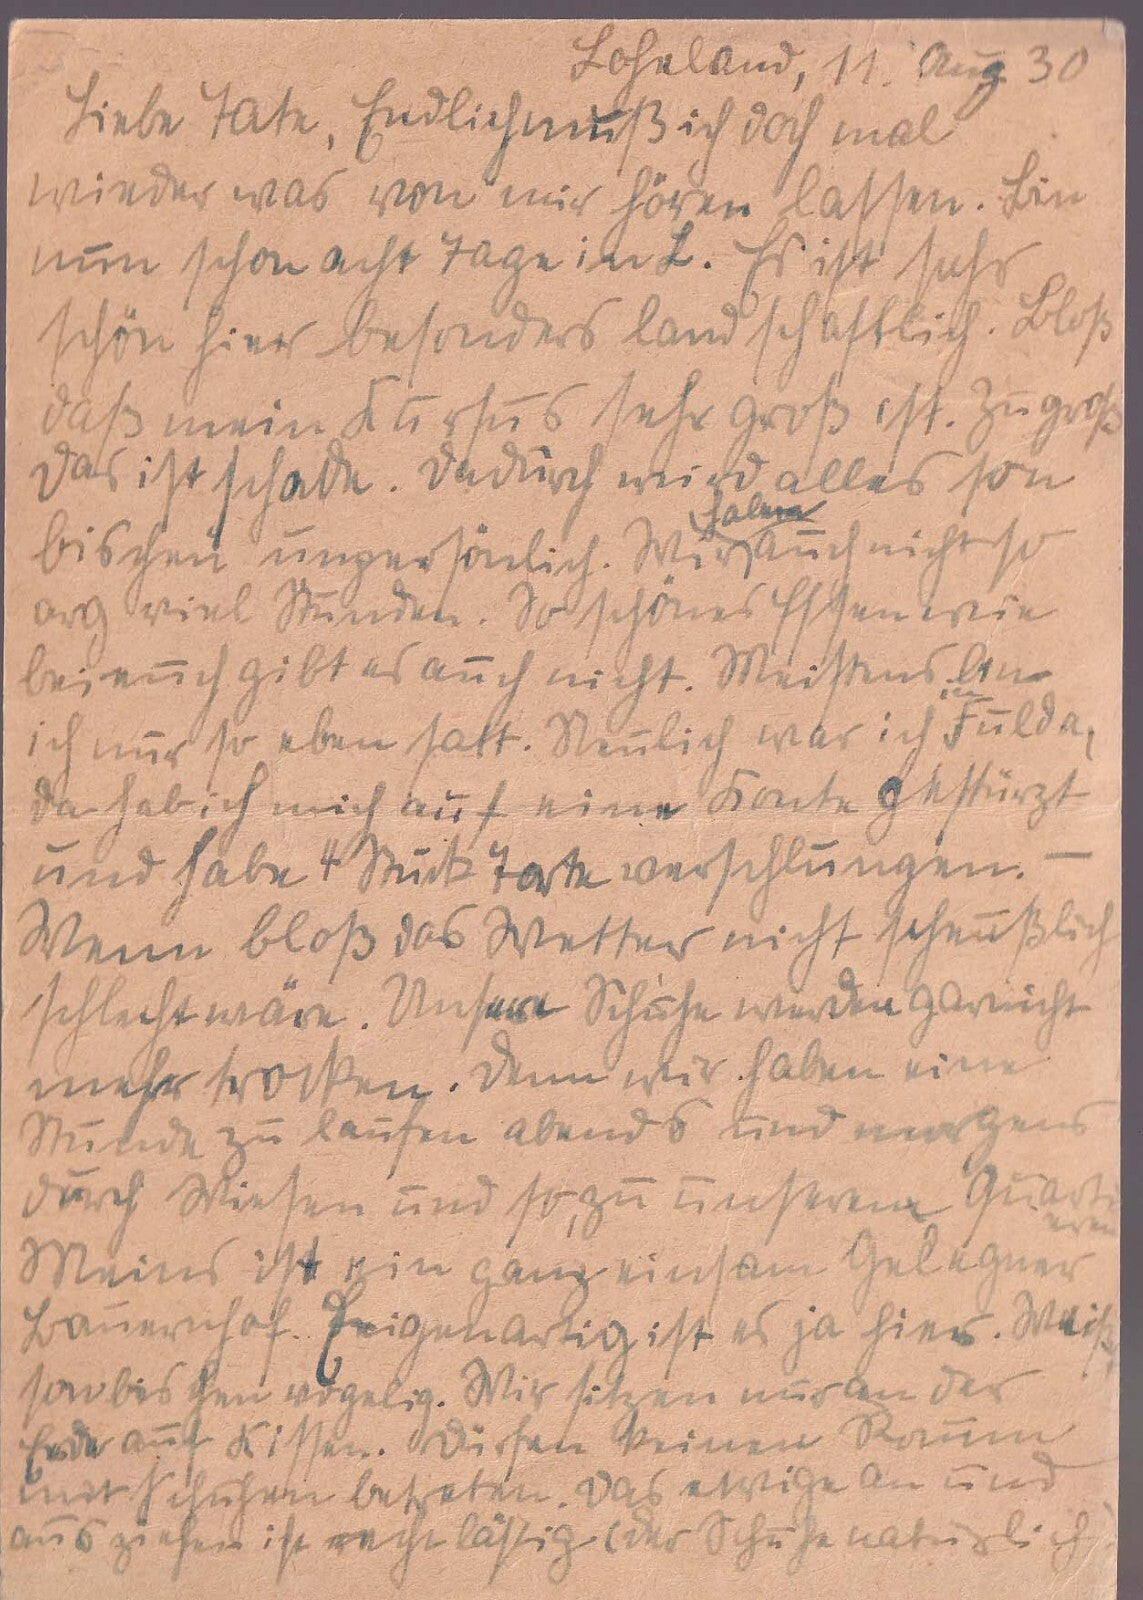 Loheland, 11. Aug 30
Liebe Tate, Endlich muß ich doch mal
wieder was von mir hören lassen. Bin
nun schon acht Tage in L. Es ist sehr
schön hier besonders landschaftlich. Bloß
daß mein Kursus sehr groß ist. Zu groß
Das ist schade. Dadurch wird alles son
bischen unpersönlich. Wir haben auch nicht so
arg viel Stunden. So schönes Essen wie
bei euch gibt es auch nicht. Meistens bin
ich nur so eben satt. Neulich war ich in Fulda,
da hab ich mich auf eine Konte gestürzt
und habe 4 Stück Torte verschlungen. —
Wenn bloß das Wetter nicht scheußlich
schlecht wäre. Unsere Schuhe werden garnicht
mehr trocken. Denn wir haben eine
Stunde zu laufen abends und morgens
durch Wiesen und so, zu unseren Quarti
eren
Meins ist ein ganz einsam Gelegner
Bauernhof. Eigenartig ist es ja hier. Weißt,
son bischen vogelig. Wir sitzen nur an der
Erde auf Kissen. Dürfen keinen Raum
mit Schuhen betreten. Das ewige an und
aus ziehen ist recht lästig (der Schuhe natürlich)